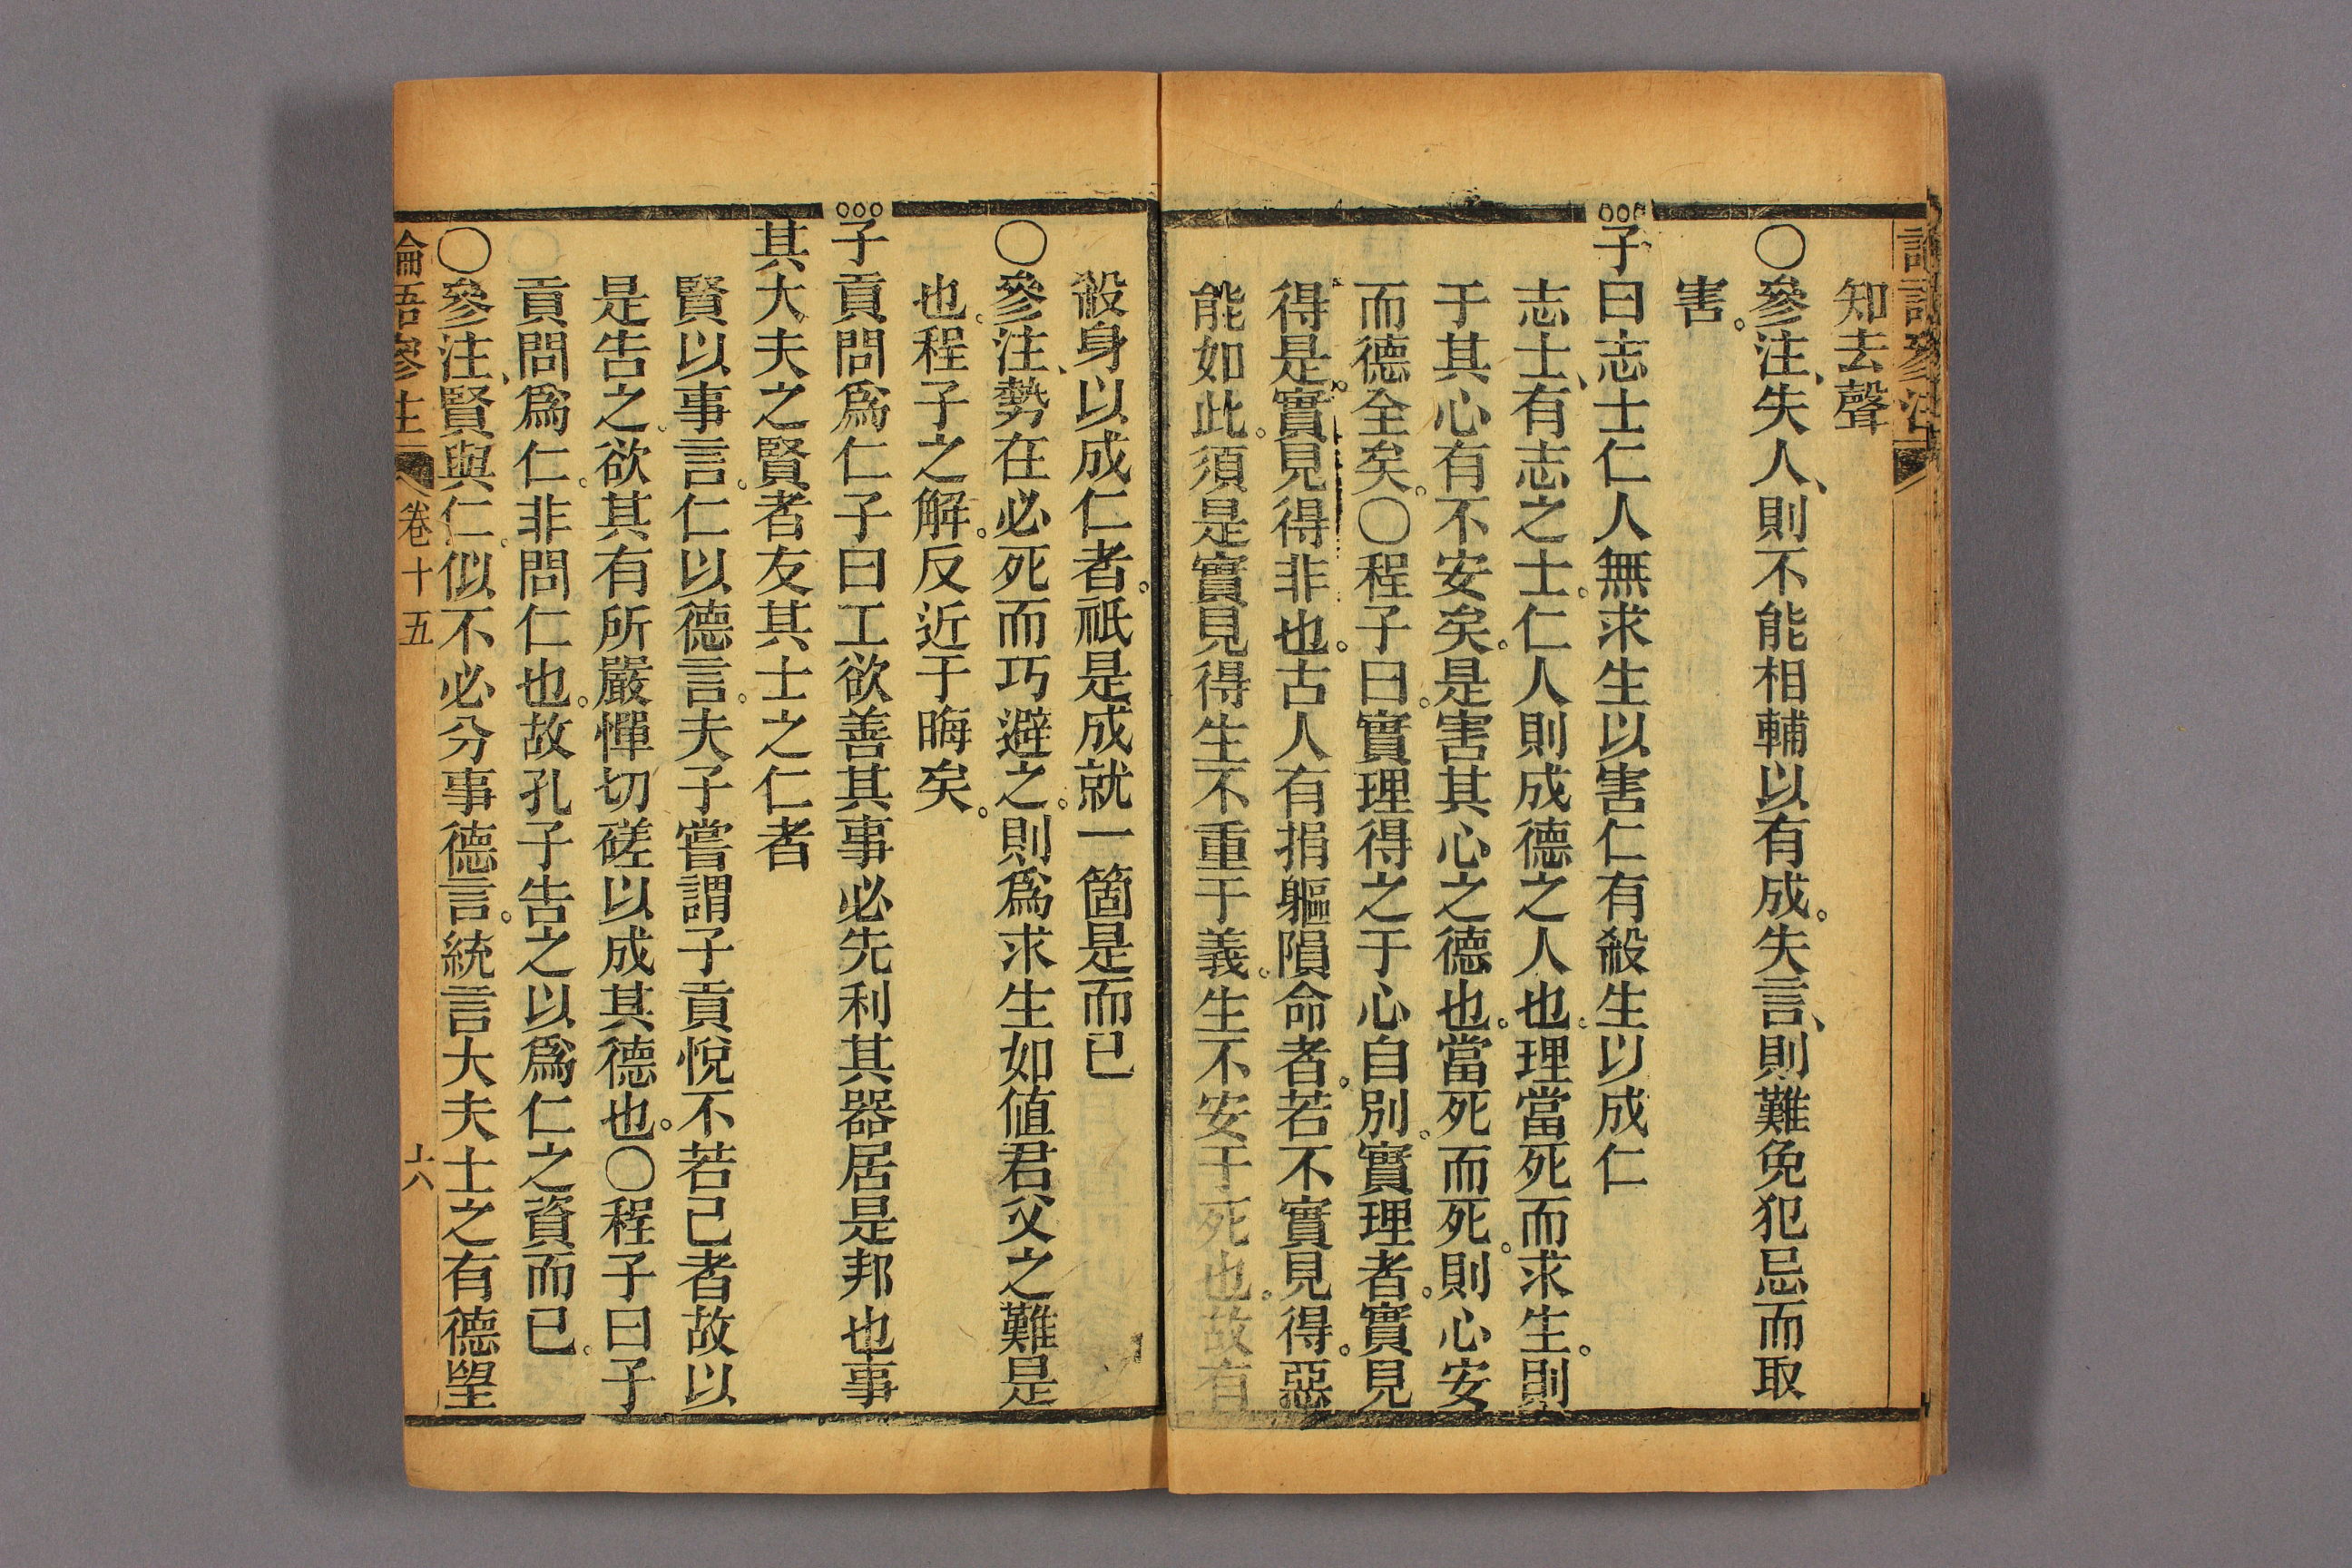 知去聲
〇參注、失人、則不能相輔以有成。失言、則難免犯忌而取
害。
子曰志士仁人無求生以害仁有殺生以成仁
志士、有志之士。仁人則成德之人也。理當死而求生。則
于其心有不安矣。是害其心之德也。當死而死。則心安
而德全矣。〇程子曰。實理得之于心自別。實理者。實見
得是。實見得非也。古人有捐軀隕命者。若不實見得。惡
能如此。須是實見得生不重于義。生不安于死也。故有
殺身以成仁者。祇是成就一箇是而已
〇參注、勢在必死而巧避之。則爲求生如値君父之難是
也。程子之解。反近于晦矣。
子貢問爲仁子曰工欲善其事必先利其器居是邦也事
其大夫之賢者友其士之仁者
賢以事言。仁以德言。夫子嘗謂子貢悅不若己者故以
是告之。欲其有所嚴憚切磋以成其德也。〇程子曰子
貢問爲仁。非問仁也。故孔子告之以爲仁之資而已。
〇參注、賢與仁。似不必分事德言。統言大夫士之有德望
論語參注 卷十五 十六